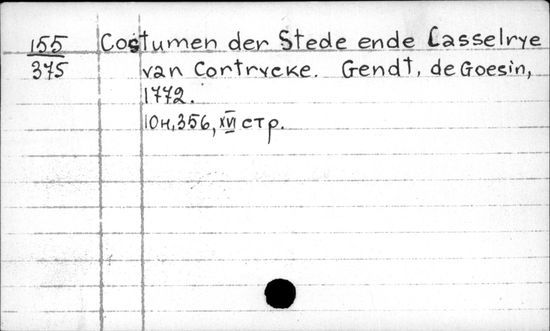 155 Costumen der Stede ende Casselrye
375 van Cortrycke. Gendt, de Goesin,
1772.
10н, 356, XVI стр.